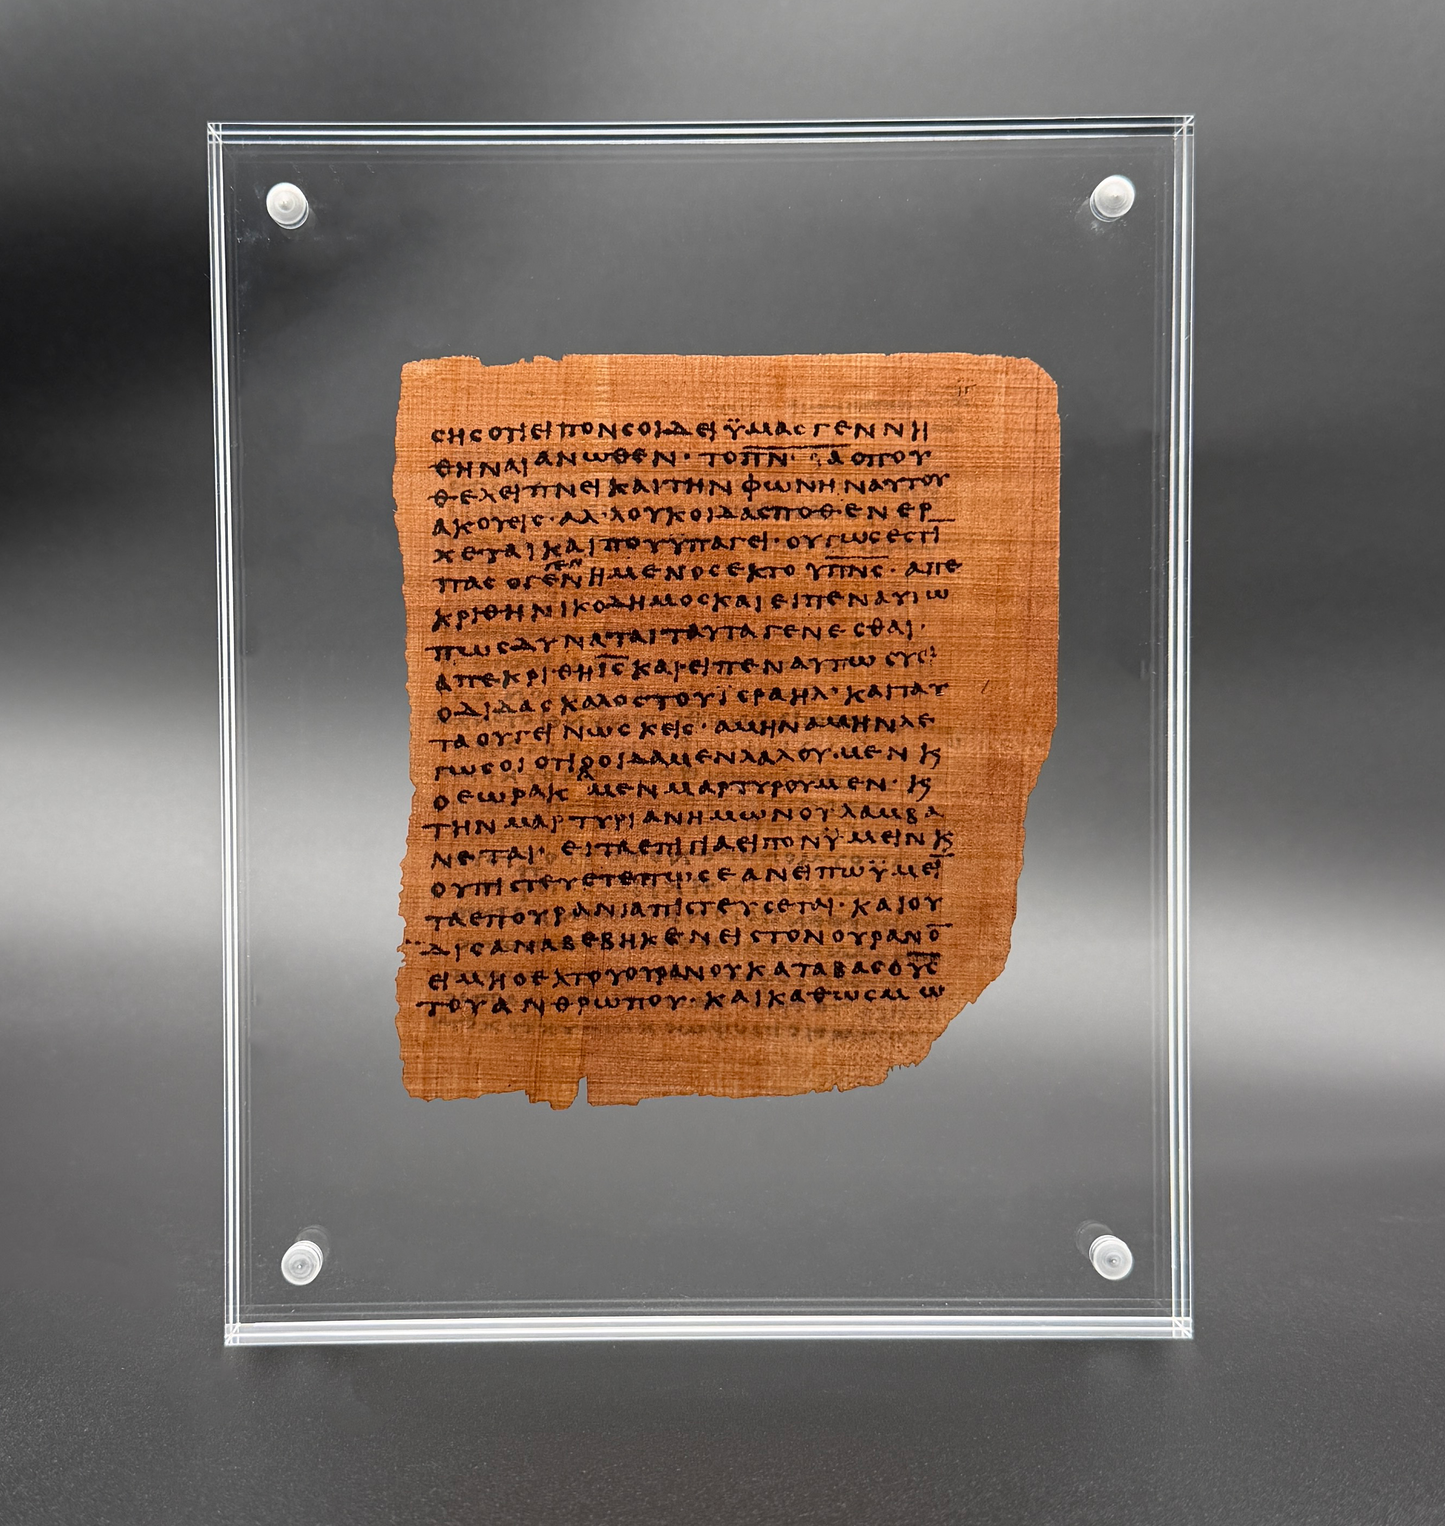 ϹΗϹΟΤΙΕΙΠΟΝϹΟΙΔΕΙΫΜΑϹΓΕΝΝΗ
ΘΗΝΑΙΑΝΩΘΕΝ· ΤΟΠ̅Ν̅Α̅ΟΠΟΥ
ΘΕΛΕΙΠΝΕΙΚΑΙΤΗΝΦΩΝΗΝΑΥΤΟΥ
ΑΚΟΥΕΙϹ·ΑΛ·ΛΟΥΚΟΙΔΑϹΠΟΘΕΝΕΡ
ΧΕΤΑΙΚΑΙΠΟΥΫΠΑΓΕΙ·ΟΥΤΩϹΕϹΤΙ̅
ΠΑϹΟΓΕΝΗΜΕΝΟϹΕΚΤΟΥΠ̅Ν̅Ϲ̅· ΑΠΕ
ΚΡΙΘΗΝΙΚΟΔΗΜΟϹΚΑΙΕΙΠΕΝΑΥΤΩ
ΠΩϹΔΥΝΑΤΑΙΤΑΥΤΑΓΕΝΕϹΘΑΙ·
ΑΠΕΚΡΙΘΗΙ̅Ϲ̅ΚΑΙΕΙΠΕΝΑΥΤΩϹΥΕΙ
ΟΔΙΔΑϹΚΑΛΟϹΤΟΥΙϹΡΑΗΛ·ΚΑΙΤΑΥ
ΤΑΟΥΓΕΙΝΩϹΚΕΙϹ·ΑΜΗΝΑΜΗΝΛΕ
ΓΩϹΟΙΟΤΙΟΟΙΔΑΜΕΝΛΑΛΟΥ·ΜΕΝϗ
ΟΕΩΡΑΚΑΜΕΝΜΑΡΤΥΡΟΥΜΕΝ·ϗ
ΤΗΝΜΑΡΤΥΡΙΑΝΗΜΩΝΟΥΛΑΜΒΑ
ΝΕΤΑΙ· ΕΙΤΑΕΠΙΓΙΑΕΙΠΟΝΫΜΕΙΝϗ
ΟΥΠΙϹΤΕΥΕΤΕΠΩϹΕΑΝΕΙΠΩΫΜΕΙ̅
ΤΑΕΠΟΥΡΑΝΙΑΠΙϹΤΕΥϹΕΤΑΙ·ΚΑΙΟΥ
ΔΙϹΑΝΑΒΕΒΗΚΕΝΕΙϹΤΟΝΟΥΡΑΝΟ̅
ΕΙΜΗΟΕΚΤΟΥΟΥΡΑΝΟΥΚΑΤΑΒΑϹΟΥ̅Ϲ̅
ΤΟΥΑΝΘΡΩΠΟΥ·ΚΑΙΚΑΘΩϹΜΩ